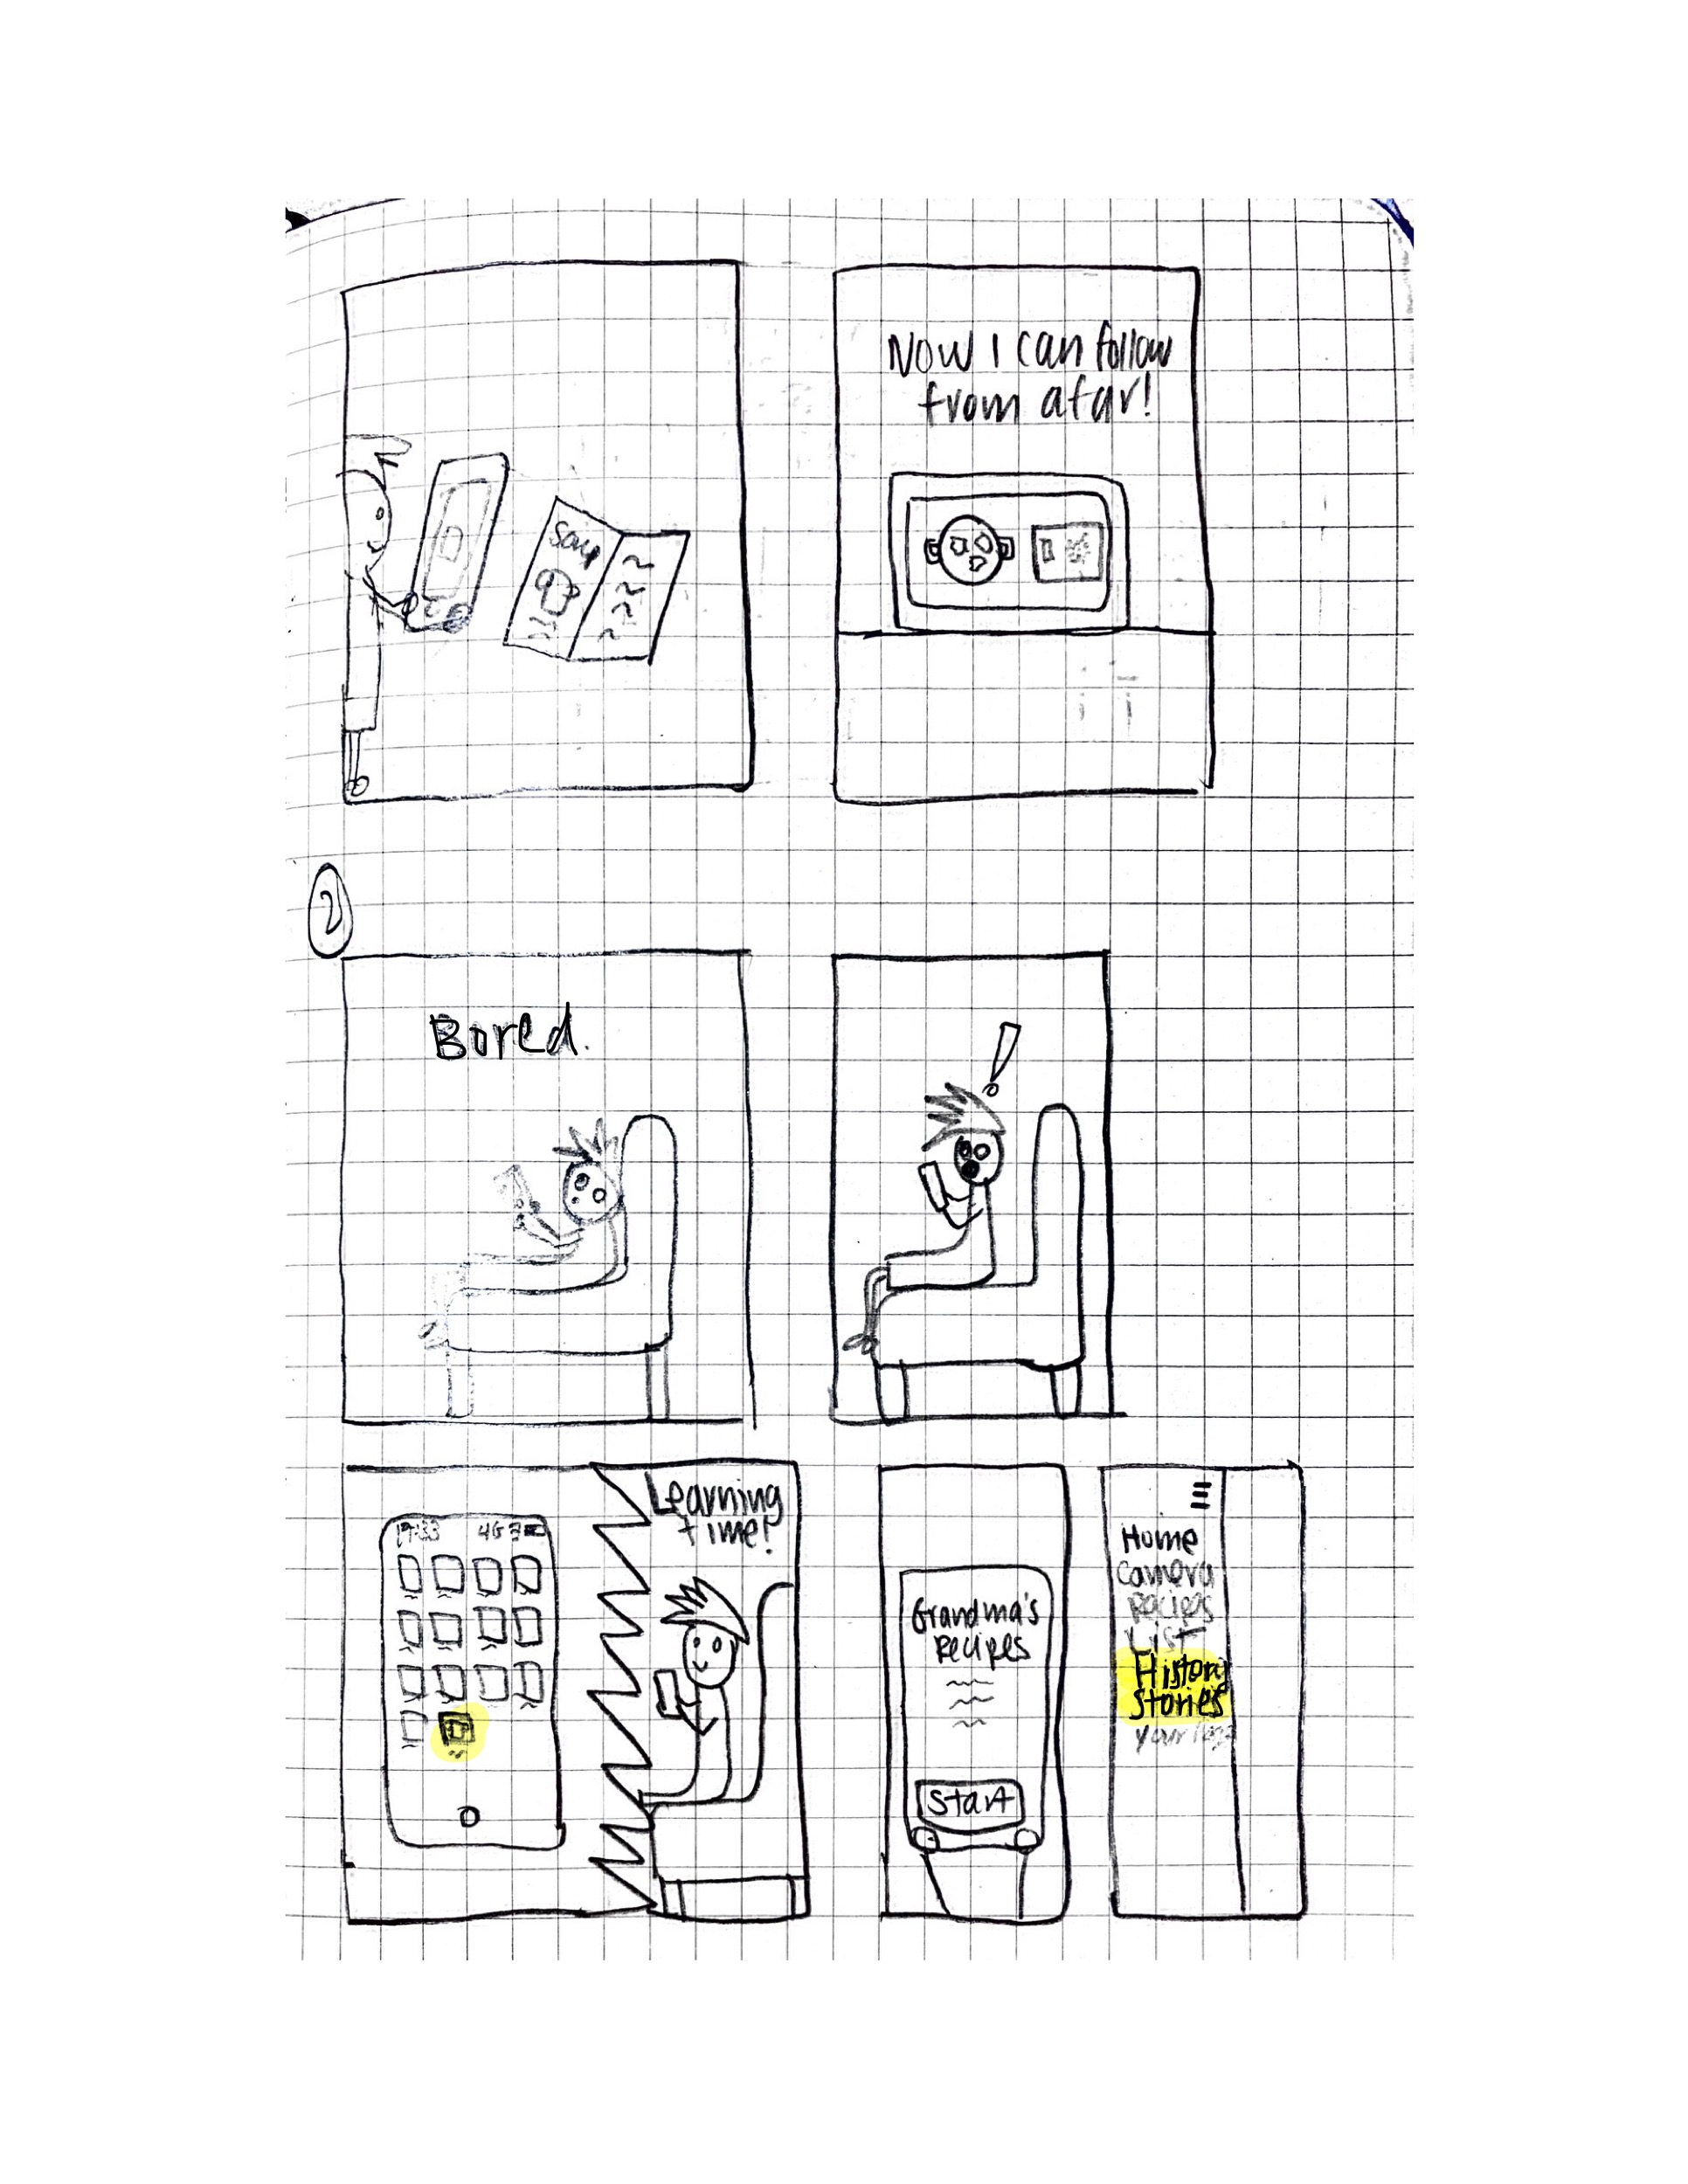 Soup
Now I can follow
from afar!
2
Bored.
!
Learning
time!
17:33 4G
Grandma's
Recipes
Start
Home
Camera
Recipes
List
History
Stories